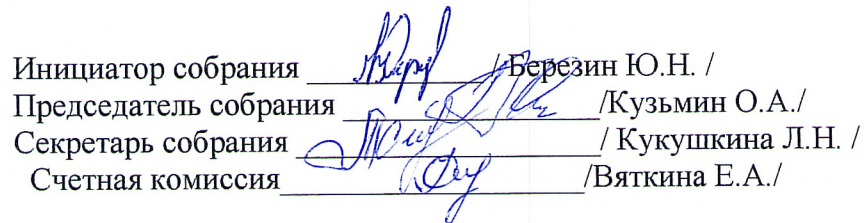 Инициатор собрания ____________/ Березин Ю.Н. /
Председатель собрания _________________/Кузьмин О.А./
Секретарь собрания ____________________/ Кукушкина Л.Н. /
Счетная комиссия____________________/Вяткина Е.А./